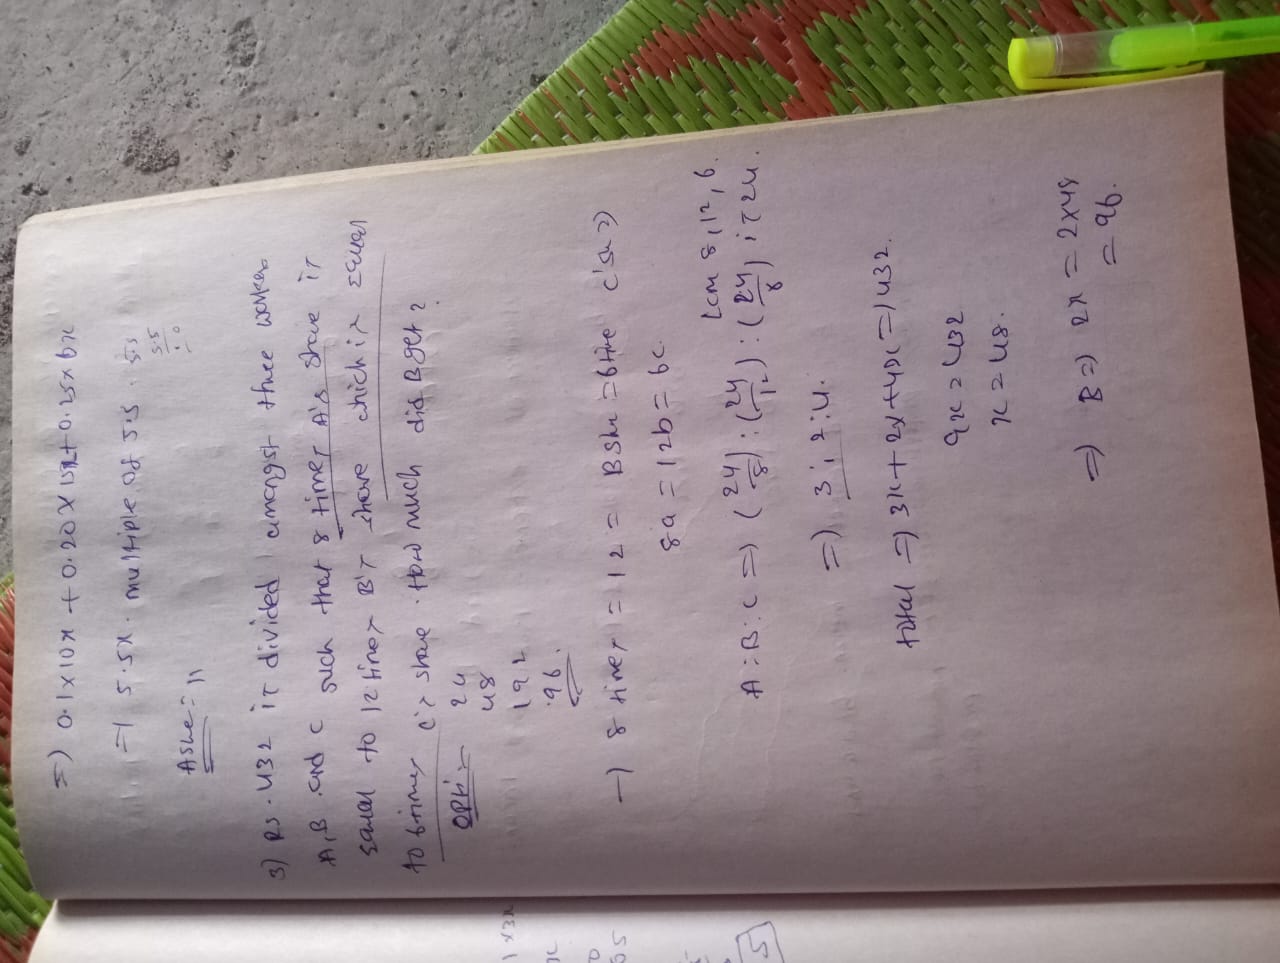 =) 0.1x10x + 0.20 x 15x + 0.25x6x
=) 5.5x. multiple of 5.5.
5.5
Aske= 11
3) RS. 432 is divided amongst three workes
A,B and c such that 8 times A's share is
equal to 12 times B's share which is equal
to 6times c's share. How much did B get?
opti:-
24
48
192
96.
-) 8 times = 12 = B She = 6 time c'sh)
8a = 12b = 6c.
Lcm 8,12,6.
A:B:c =) (24/8) : (24/12) : (24/8) is 24.
=) 3:2:4.
total =) 3x + 2x + 4x =) 432.
9x = 432
x = 48.
=) B =) 2x = 2x48
= 96.
1x3x
5